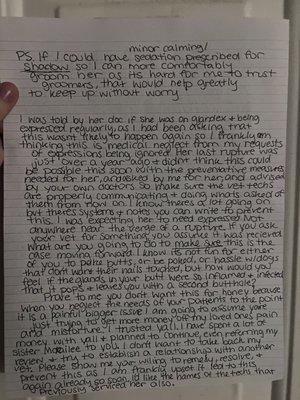 minor calming/
PS. If I could have sedation prescribed for
Shadow so I can more comfortably
groom her as its hard for me to trust
groomers, that would help greatly
to keep up without worry
I was told by her doc if she was on glandex + being
expressed regularly, as I had been asking that
this wasn't likely to happen again so I frankly am
thinking this is medical neglect from my requests
of expressions being ignored. Her last rupture was
just over a year ago + didn't think this could
be possible this soon with the preventative measures
needed for her, advised by me for her and advised
by your own doctors so make sure the vet techs
are properly communicating + doing whats asked of
them from now on. I know theres a lot going on
but theres systems + notes you can write to prevent
this. I was expecting her to need expressed not
anywhere near the verge of a rupture. If you ask
your vet for something, you assume it was recieved
What are you going to do to make sure this is the
case moving forward. I know its not fun for either
of you to poke butts, or be poked, or hassle w/dogs
that don't want their nails touched, but how would you
feel if the glands in your butt were so inflamed + infected
that it pops + leaves you with a second butthole?
Prove to me you dont want this for honey because
When you neglect the needs of your patients to the point
it is a painful bigger issue I am going to assume yare
just trying to get more money off my loved ones pain
and misfortune. I trusted yall. I have spent a lot of
money with yall + planned to continue, even referring my
sister to you. I don't want to take back my
review + try to establish a relationship with another
vet. Please show me your willing to remedy, resolve, +
prevent this as I am frankly upset it led to this
again already so soon. Id like the names of the techs that
previously serviced her also.